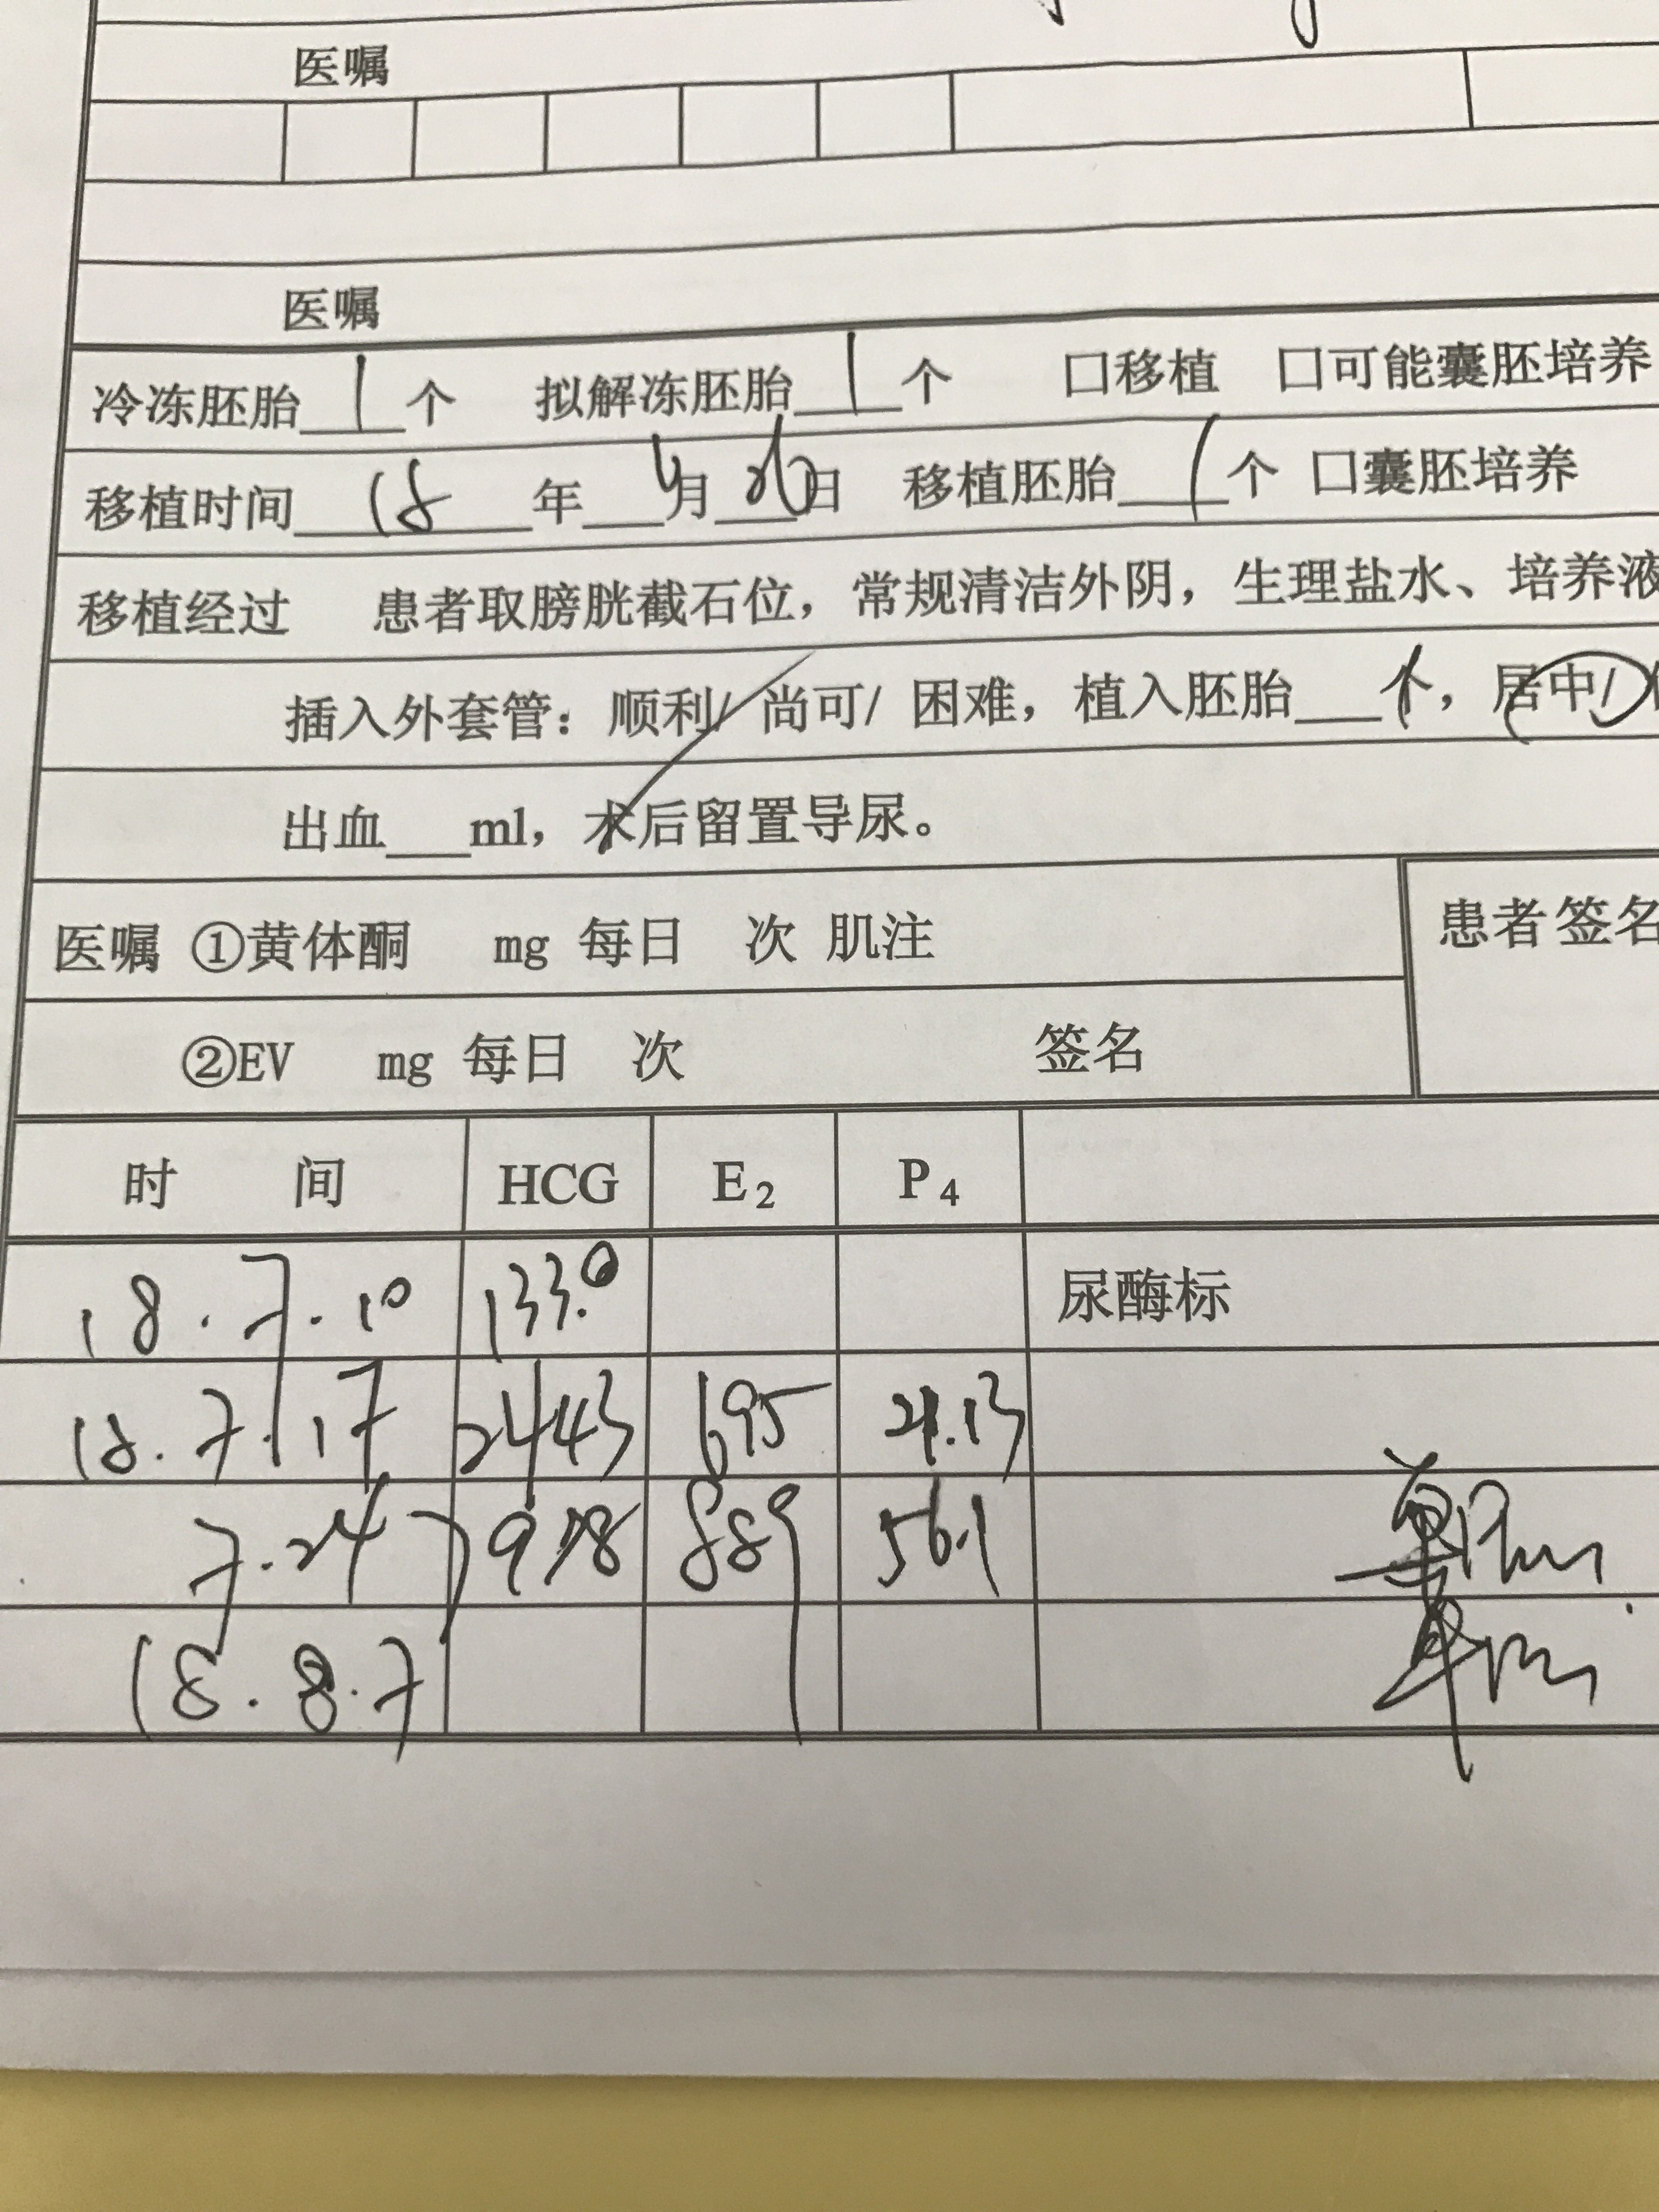 医嘱
医嘱
冷冻胚胎 1 个 拟解冻胚胎 1 个 口移植 口可能囊胚培养
移植时间 18 年 月 日 移植胚胎 1 个 口囊胚培养
移植经过 患者取膀胱截石位，常规清洁外阴，生理盐水、培养液
插入外套管：顺利/ 尚可/ 困难，植入胚胎___个，居中/
出血___ml，术后留置导尿。
医嘱 ①黄体酮 mg 每日 次 肌注 患者签名
②EV mg 每日 次 签名
时 间 HCG E2 P4
18.7.10 133.0 尿酶标
18.7.17 2443 695 21.13
7.24 889 56.1
18.8.7